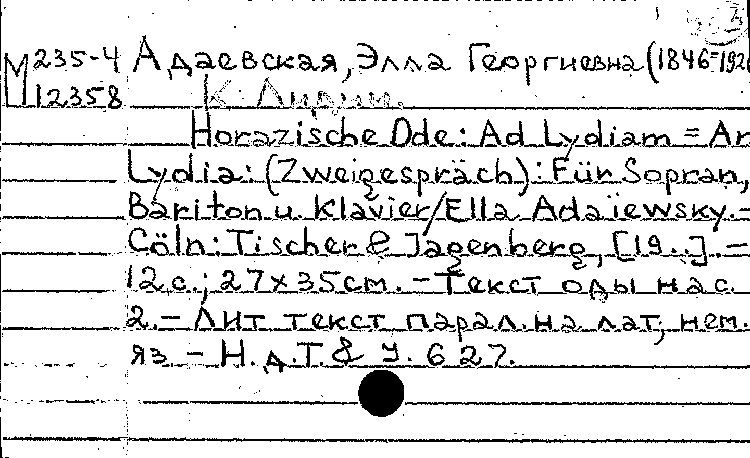 М 235-4 Адаевская, Элла Георгиевна (1846-192
12358 К Лидии.
Horazische Ode: Ad Lydiam = An
Lydia: (Zweigespräch): Für Sopran,
Bariton u. Klavier/Ella Adaïewsky. -
Cöln: Tischer & Jagenberg, [19..]. -
12 с.; 27x35см. - Текст оды на с.
2. - Лит текст парал. на лат., нем.
яз - Н. д. T. & J. 627.